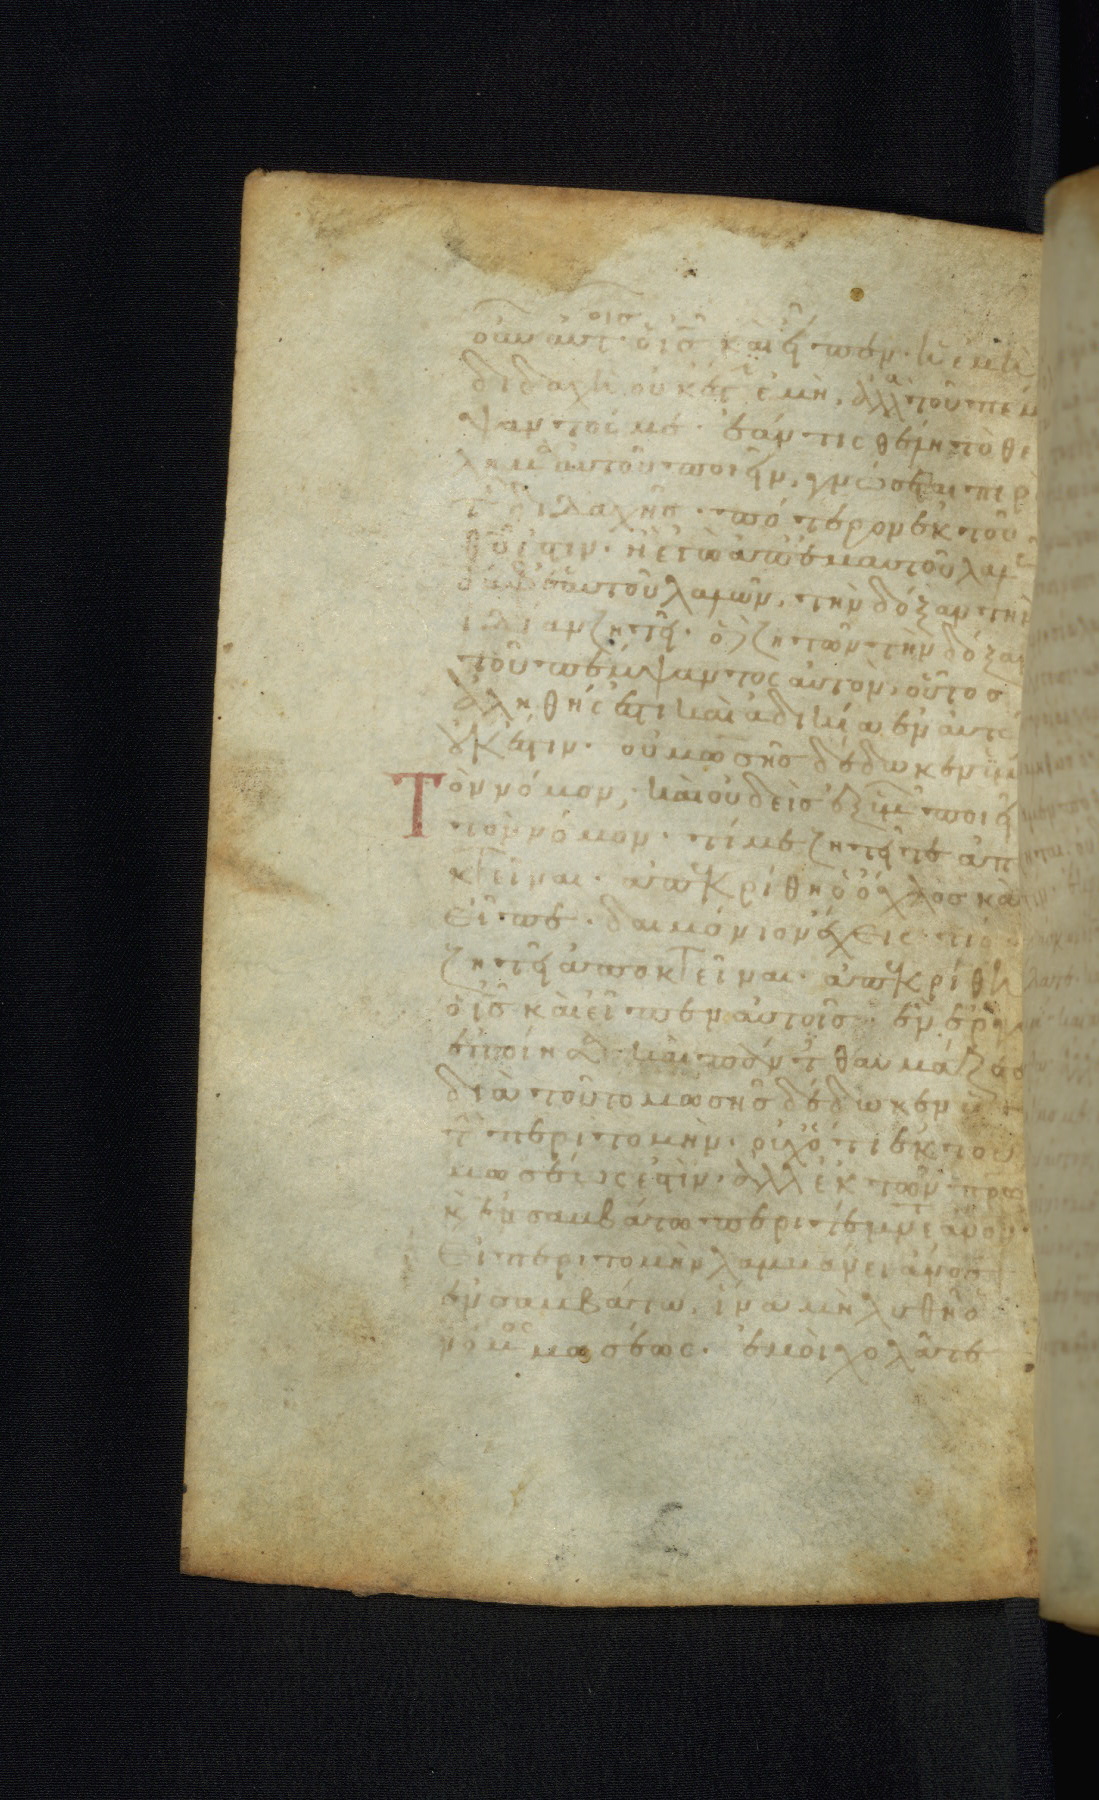 οὖν αὐτοῖς ὁ ις καὶ εἶπεν. ἡ ἐμὴ
διδαχὴ οὐκ ἔστιν ἐμὴ, ἀλλὰ τοῦ πέμ
ψαντός με. ἐάν τις θέλη τὸ θέ
λημα αὐτοῦ ποιεῖν, γνώσεται περὶ
τῆς διδαχῆς. πότερον ἐκ τοῦ
θυ ἐστιν. ἢ ἐγὼ ἀπ' ἐμαυτοῦ λαλῶ
ὁ ἀφ' ἑαυτοῦ λαλῶν, τὴν δόξαν τὴν
ἰδίαν ζητεῖ. ὁ δὲ ζητῶν τὴν δόξαν
τοῦ πέμψαντος αὐτὸν. οὗτος
ἀληθής ἐστι καὶ ἀδικία ἐν αὐτῶ
οὐκ ἔστιν. οὐ μωσῆς δέδωκεν ὑμῖν
Τὸν νόμον, καὶ οὐδεὶς ἐξ ὑμῶν ποιεῖ
τὸν νόμον. τί με ζητεῖτε ἀπο
κτεῖναι. ἀπεκρίθη ὁ ὄχλος καὶ
εἶπε. δαιμόνιον ἔχεις. τίς σε
ζητεῖ ἀποκτεῖναι. ἀπεκρίθη
ὁ ις καὶ εἶπεν αὐτοῖς. ἓν ἔργον
ἐποίησα καὶ πάντες θαυμάζετε
διὰ τοῦτο μωσῆς δέδωκεν ὑμῖν
τὴν περιτομὴν. οὐχ ὅτι ἐκ τοῦ
μωσέως ἐστὶν. ἀλλ' ἐκ τῶν πρων
κ ἐν σαββάτω περιτέμνετε ανον.
Εἰ περιτομὴν λαμβάνει ανος
ἐν σαββάτω. ἵνα μὴ λυθῆ ὁ
νόμος μωσέως. ἐμοὶ χολᾶτε